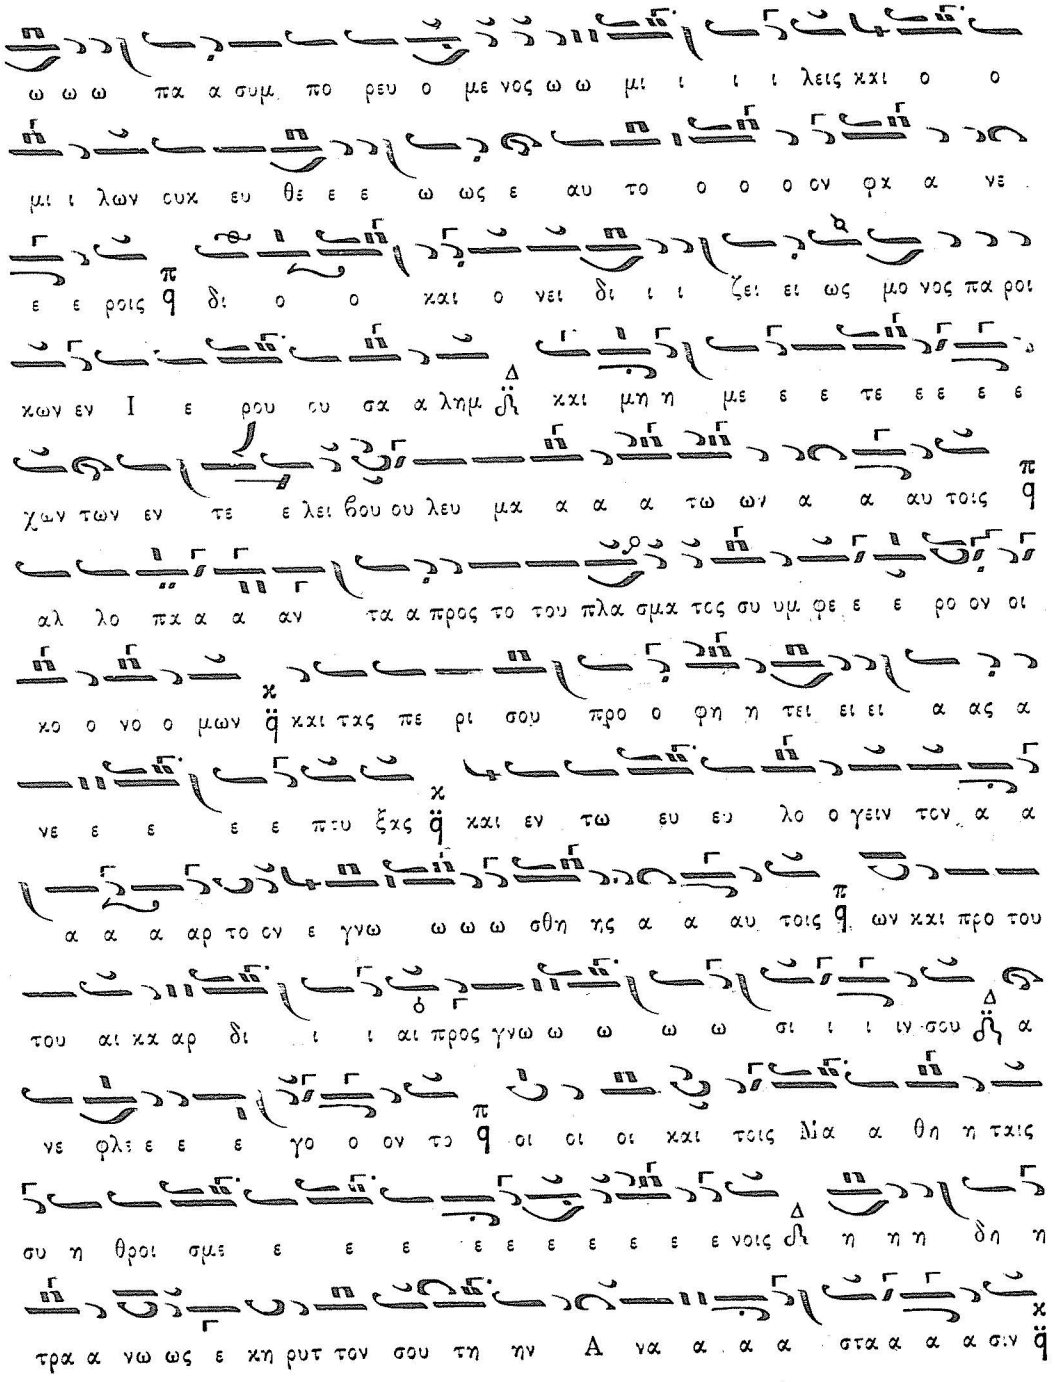 ω ω ω πα α συμ πο ρευ ο με νος ω ω μι ι ι ι λεις και ο ο
μι ι λων ουκ ευ θε ε ε ω ως ε αυ το ο ο ο ον φα α νε
ε ε ροις π q δι ο ο και ο νει δι ι ι ζει ει ως μο νος πα ροι
κων εν Ι ε ρου ου σα α λημ Δ και μη η με ε ε τε ε ε ε ε
χων των εν τε ε λει βου ου λευ μα α α α τω ων α α αυ τοις π q
αλ λο πα α α αν τα α προς το του πλα σμα τος συ υμ φε ε ε ρο ον οι
κο ο νο ο μων κ q και τας πε ρι σου προ ο φη η τει ει ει α ας α
νε ε ε ε ε πτυ ξας κ q και εν τω ευ ευ λο ο γειν τον α α
α α α αρ το ον ε γνω ω ω ω σθη ης α α αυ τοις π q ων και προ του
του αι κα αρ δι ι ι αι προς γνω ω ω ω ω σι ι ι ιν σου Δ α
νε φλε ε ε ε γο ο ον το π q οι οι οι και τοις Μα α θη η ταις
συ η θροι σμε ε ε ε ε ε ε ε ε ε ε νοις Δ η η η δη η
τρα α νω ως ε κη ρυτ τον σου τη ην Α να α α α στα α α α σιν κ q